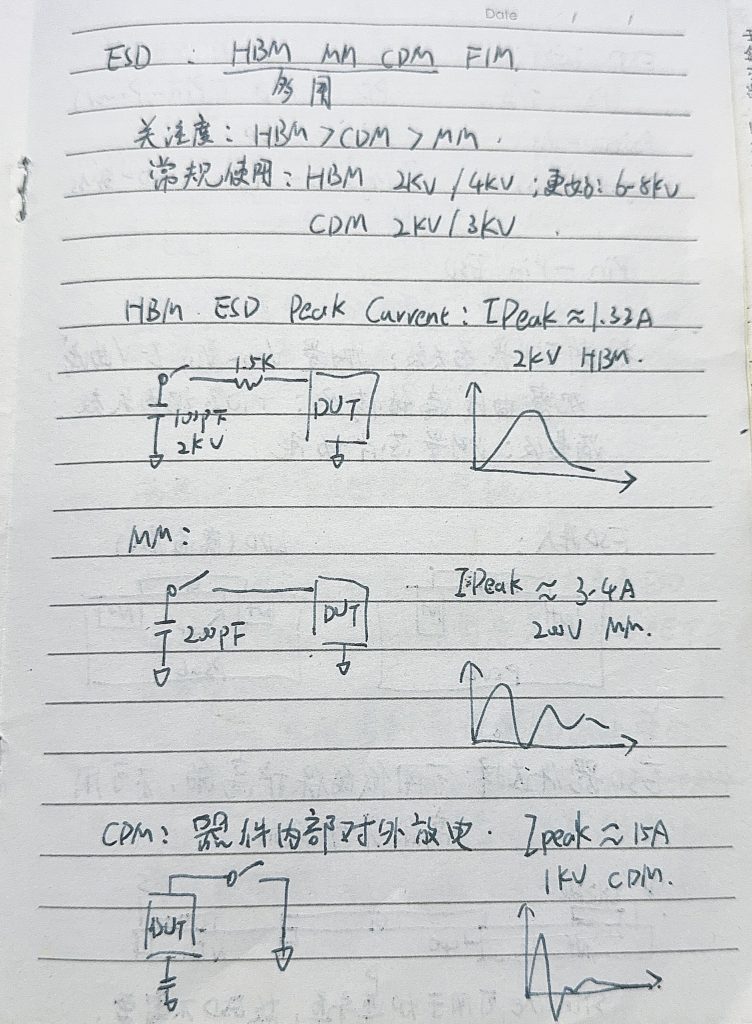 Date / /
ESD : HBM MM CDM FIM.
多用
关注度: HBM > CDM > MM.
常规使用: HBM 2KV / 4KV ; 更好: 6-8KV
CDM 2KV / 3KV.
HBM ESD Peak Current: IPeak ≈ 1.33A
2KV HBM.
1.5K
100PF
2KV
DUT
MM:
IPeak ≈ 3-4A
200V MM.
200PF
DUT
CDM: 器件内部对外放电. Ipeak ≈ 15A
1KV CDM.
DUT